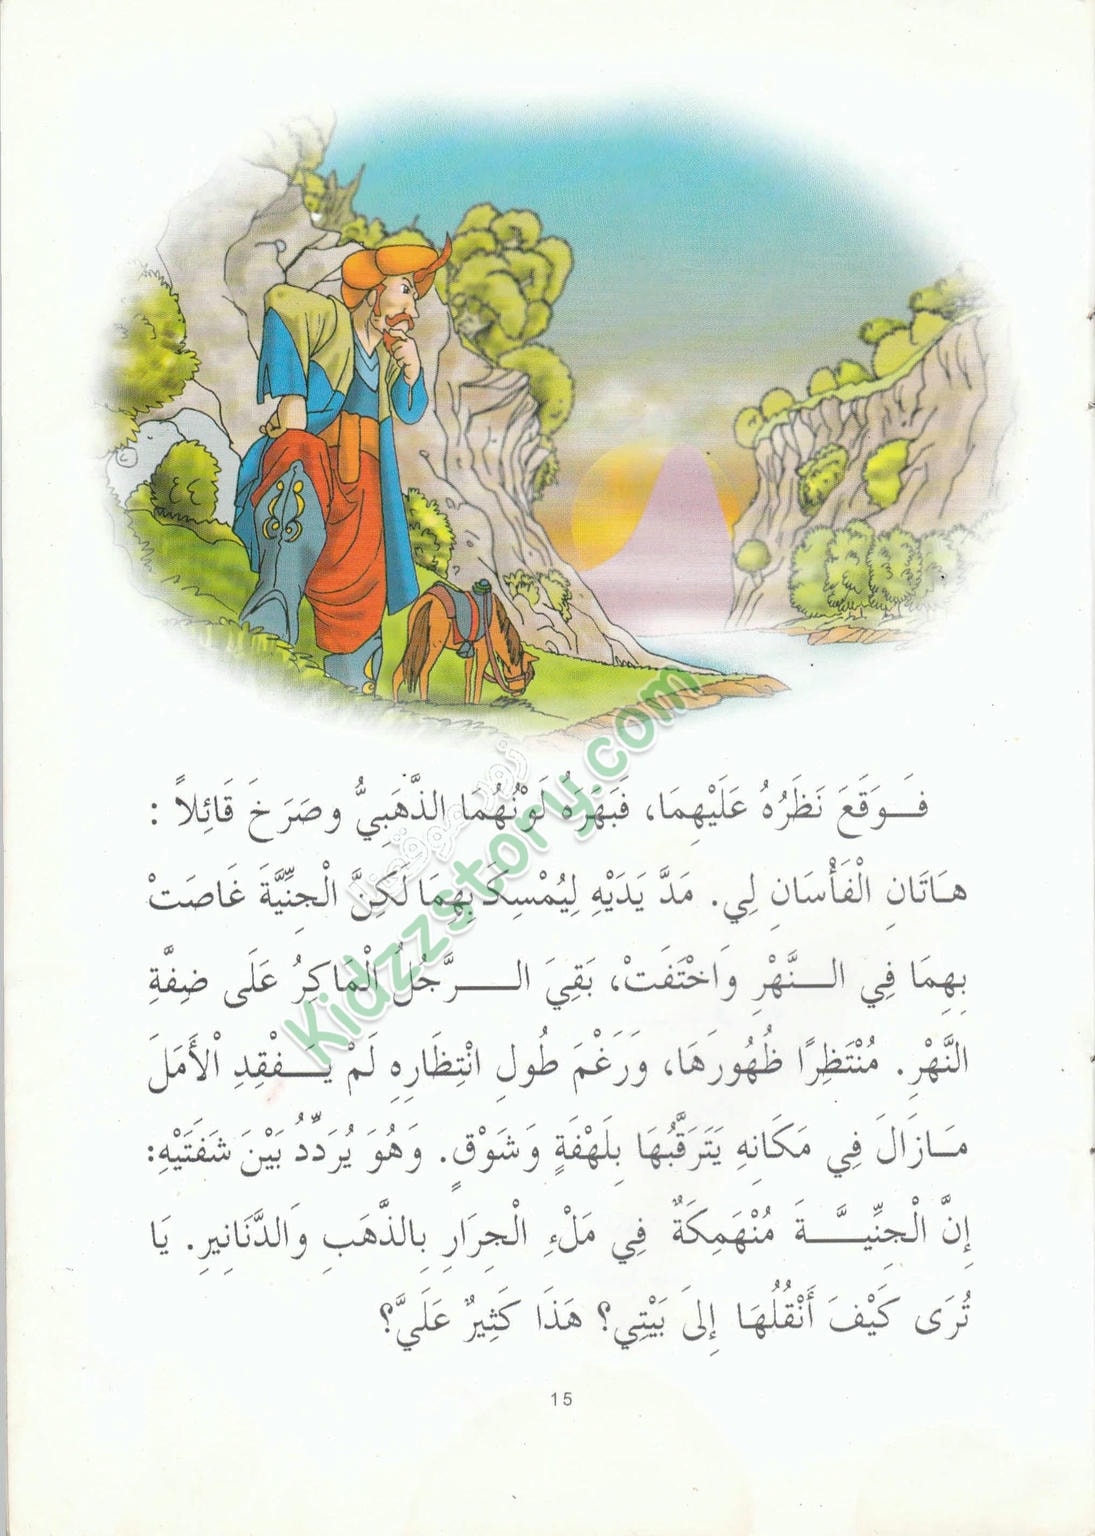 فَــوَقَعَ نَظَرُهُ عَلَيْهِمَا، فَبَهَرَهُ لَوْنُهُمَا الذَّهَبِيُّ وصَرَخَ قَائِلاً :
هَاتَانِ الْفَأْسَانِ لِي. مَدَّ يَدَيْهِ لِيُمْسِكَ بِهِمَا لَكِنَّ الْجِنِّيَّةَ غَاصَتْ
بِهِمَا فِي الــنَّهْرِ وَاخْتَفَتْ، بَقِيَ الــرَّجُلُ الْمَاكِرُ عَلَى ضِفَّةِ
النَّهْرِ. مُنْتَظِرًا ظُهُورَهَا، وَرَغْمَ طُولِ انْتِظَارِهِ لَمْ يَــفْقِدِ اْلأَمَلَ
مَــازَالَ فِي مَكَانِهِ يَتَرَقَّبُهَا بِلَهْفَةٍ وَشَوْقٍ. وَهُوَ يُرَدِّدُ بَيْنَ شَفَتَيْهِ:
إِنَّ الْجِنِّيــَّــةَ مُنْهَمِكَةٌ فِي مَلْءِ الْجِرَارِ بِالذَّهَبِ وَالدَّنَانِيرِ. يَا
تُرَى كَيْفَ أَنْقُلُهَا إِلَى بَيْتِي؟ هَذَا كَثِيرٌ عَلَيَّ؟
15
زوروا موقعنا
Kidzzstory.com